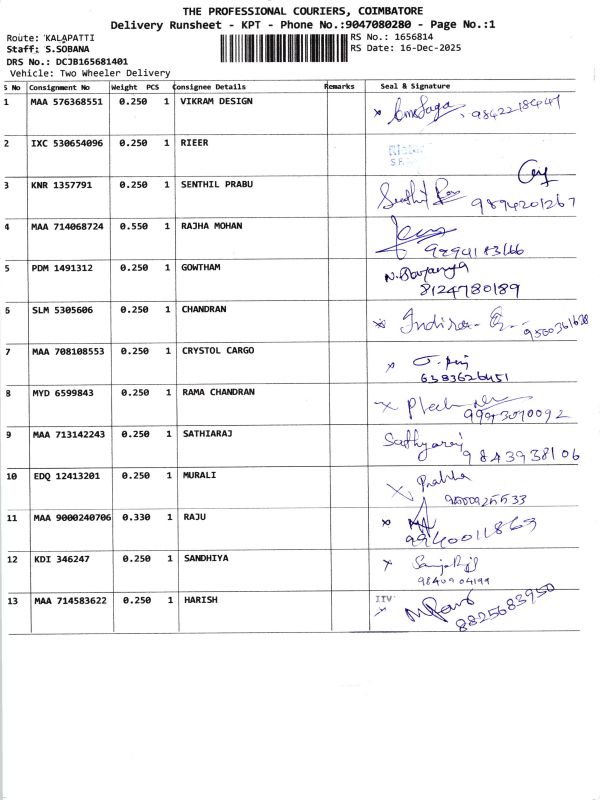 THE PROFESSIONAL COURIERS, COIMBATORE
Delivery Runsheet - KPT - Phone No.:9047080280 - Page No.:1
Route: KALAPATTI RS No.: 1656814
Staff: S.SOBANA RS Date: 16-Dec-2025
DRS No.: DCJB165681401
Vehicle: Two Wheeler Delivery
S No Consignment No Weight PCS Consignee Details Remarks Seal & Signature
1 MAA 576368551 0.250 1 VIKRAM DESIGN 9842218441
2 IXC 530654096 0.250 1 RIEER
3 KNR 1357791 0.250 1 SENTHIL PRABU Senthil 9894201267
4 MAA 714068724 0.550 1 RAJHA MOHAN 9294183166
5 PDM 1491312 0.250 1 GOWTHAM 8124780189
6 SLM 5305606 0.250 1 CHANDRAN Indira
7 MAA 708108553 0.250 1 CRYSTOL CARGO 6383626451
8 MYD 6599843 0.250 1 RAMA CHANDRAN 9994307092
9 MAA 713142243 0.250 1 SATHIARAJ Sathyaraj 9843938106
10 EDQ 12413201 0.250 1 MURALI Prabha
11 MAA 9000240706 0.330 1 RAJU 9940011869
12 KDI 346247 0.250 1 SANDHIYA 9840904199
13 MAA 714583622 0.250 1 HARISH 8825683950